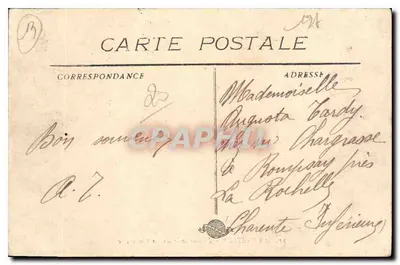 13
CARTE POSTALE
CORRESPONDANCE
ADRESSE
Bon souvenir
A. T.
Mademoiselle
Augusta Tardy
Chargrasse
à Rompsay près
La Rochelle
Charente-Inférieure
CPAPHIL